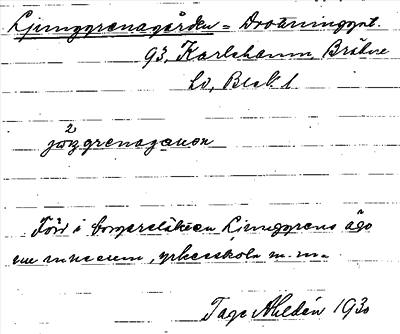 Ljunggrenagården = Drottninggat.
93, Karlshamn, Bräkne
hd, Blek. l
jö²ŋgrenaganon
Förr i borgaresläkten Ljunggrens ägo
nu museum, yrkesskola m.m.
Tage Ahldén 1930